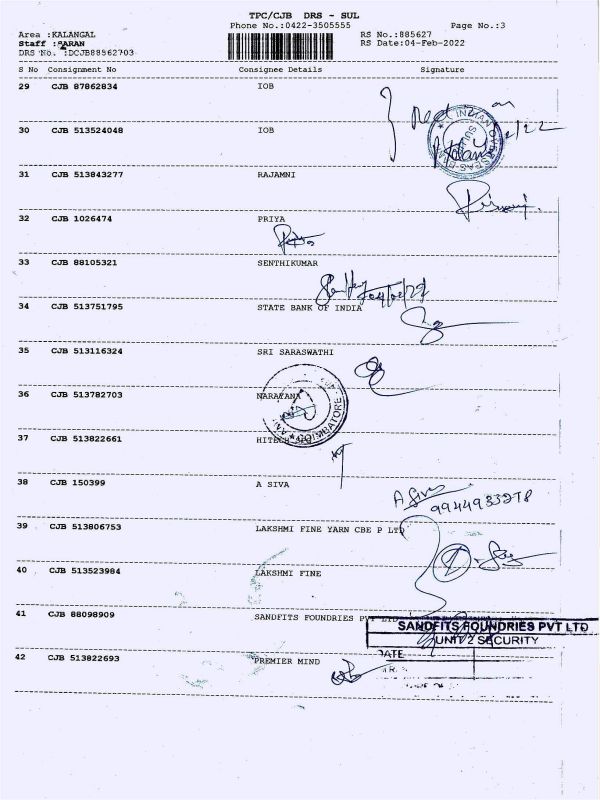 TPC/CJB DRS - SUL
Phone No.:0422-3505555
Page No.:3
Area :KALANGAL
RS No.:885627
Staff :SARAN
RS Date:04-Feb-2022
DRS No. :DCJB88562703
S No Consignment No Consignee Details Signature
29 CJB 87862834 IOB
30 CJB 513524048 IOB
31 CJB 513843277 RAJAMNI
32 CJB 1026474 PRIYA
33 CJB 88105321 SENTHIKUMAR
34 CJB 513751795 STATE BANK OF INDIA
35 CJB 513116324 SRI SARASWATHI
36 CJB 513782703 NARAYANA
COIMBATORE
37 CJB 513822661 HITECH
38 CJB 150399 A SIVA
A Siva
9944933278
39 CJB 513806753 LAKSHMI FINE YARN CBE P LTD
40 CJB 513523984 LAKSHMI FINE
41 CJB 88098909 SANDFITS FOUNDRIES PVT LTD
SANDFITS FOUNDRIES PVT LTD
UNIT 2 SECURITY
DATE
42 CJB 513822693 PREMIER MIND